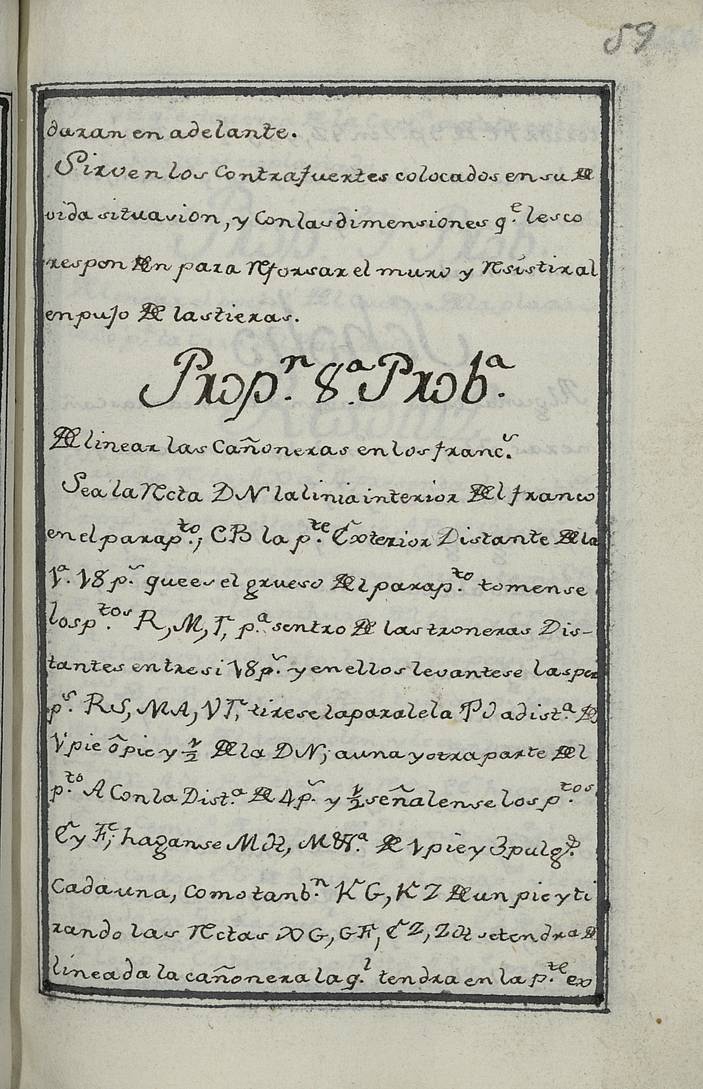 59
duran en adelante.
Sirven los contrafuertes colocados en su De
vida situasion, y con las dimensiones q.e les co
rresponDen para Reforsar el muro y Resistir al
enpujo De las tieras.
Prop.n 8.a Prob.a
Delinear las cañoneras en los franc.s
Sea la Recta DN la linia interior Del franco
en el parap.to; CB la p.te Exterior Distante De la
1.a 18 p.s que es el grueso Del parap.to tomense
los p.tos R, M, T, p.a sentro De las troneras Dis-
tantes entre si 18 p.s y en ellos levantese las per
p.s RS, MA, VT, tirese la paralela PJ a dist.a De
1 pie ô pie y 1/2 De la DN; a una y otra parte Del
p.to A con la Dist.a De 4 p.s y 1/2 señalense los p.tos
E y F; haganse
De 1 pie y 3 pulg.s
cada una, como tanb.n KG, KZ De un pie y ti
rando las Rectas XG, GF, EZ, se tendra De
lineada la cañonera la q.l tendra en la p.te ex